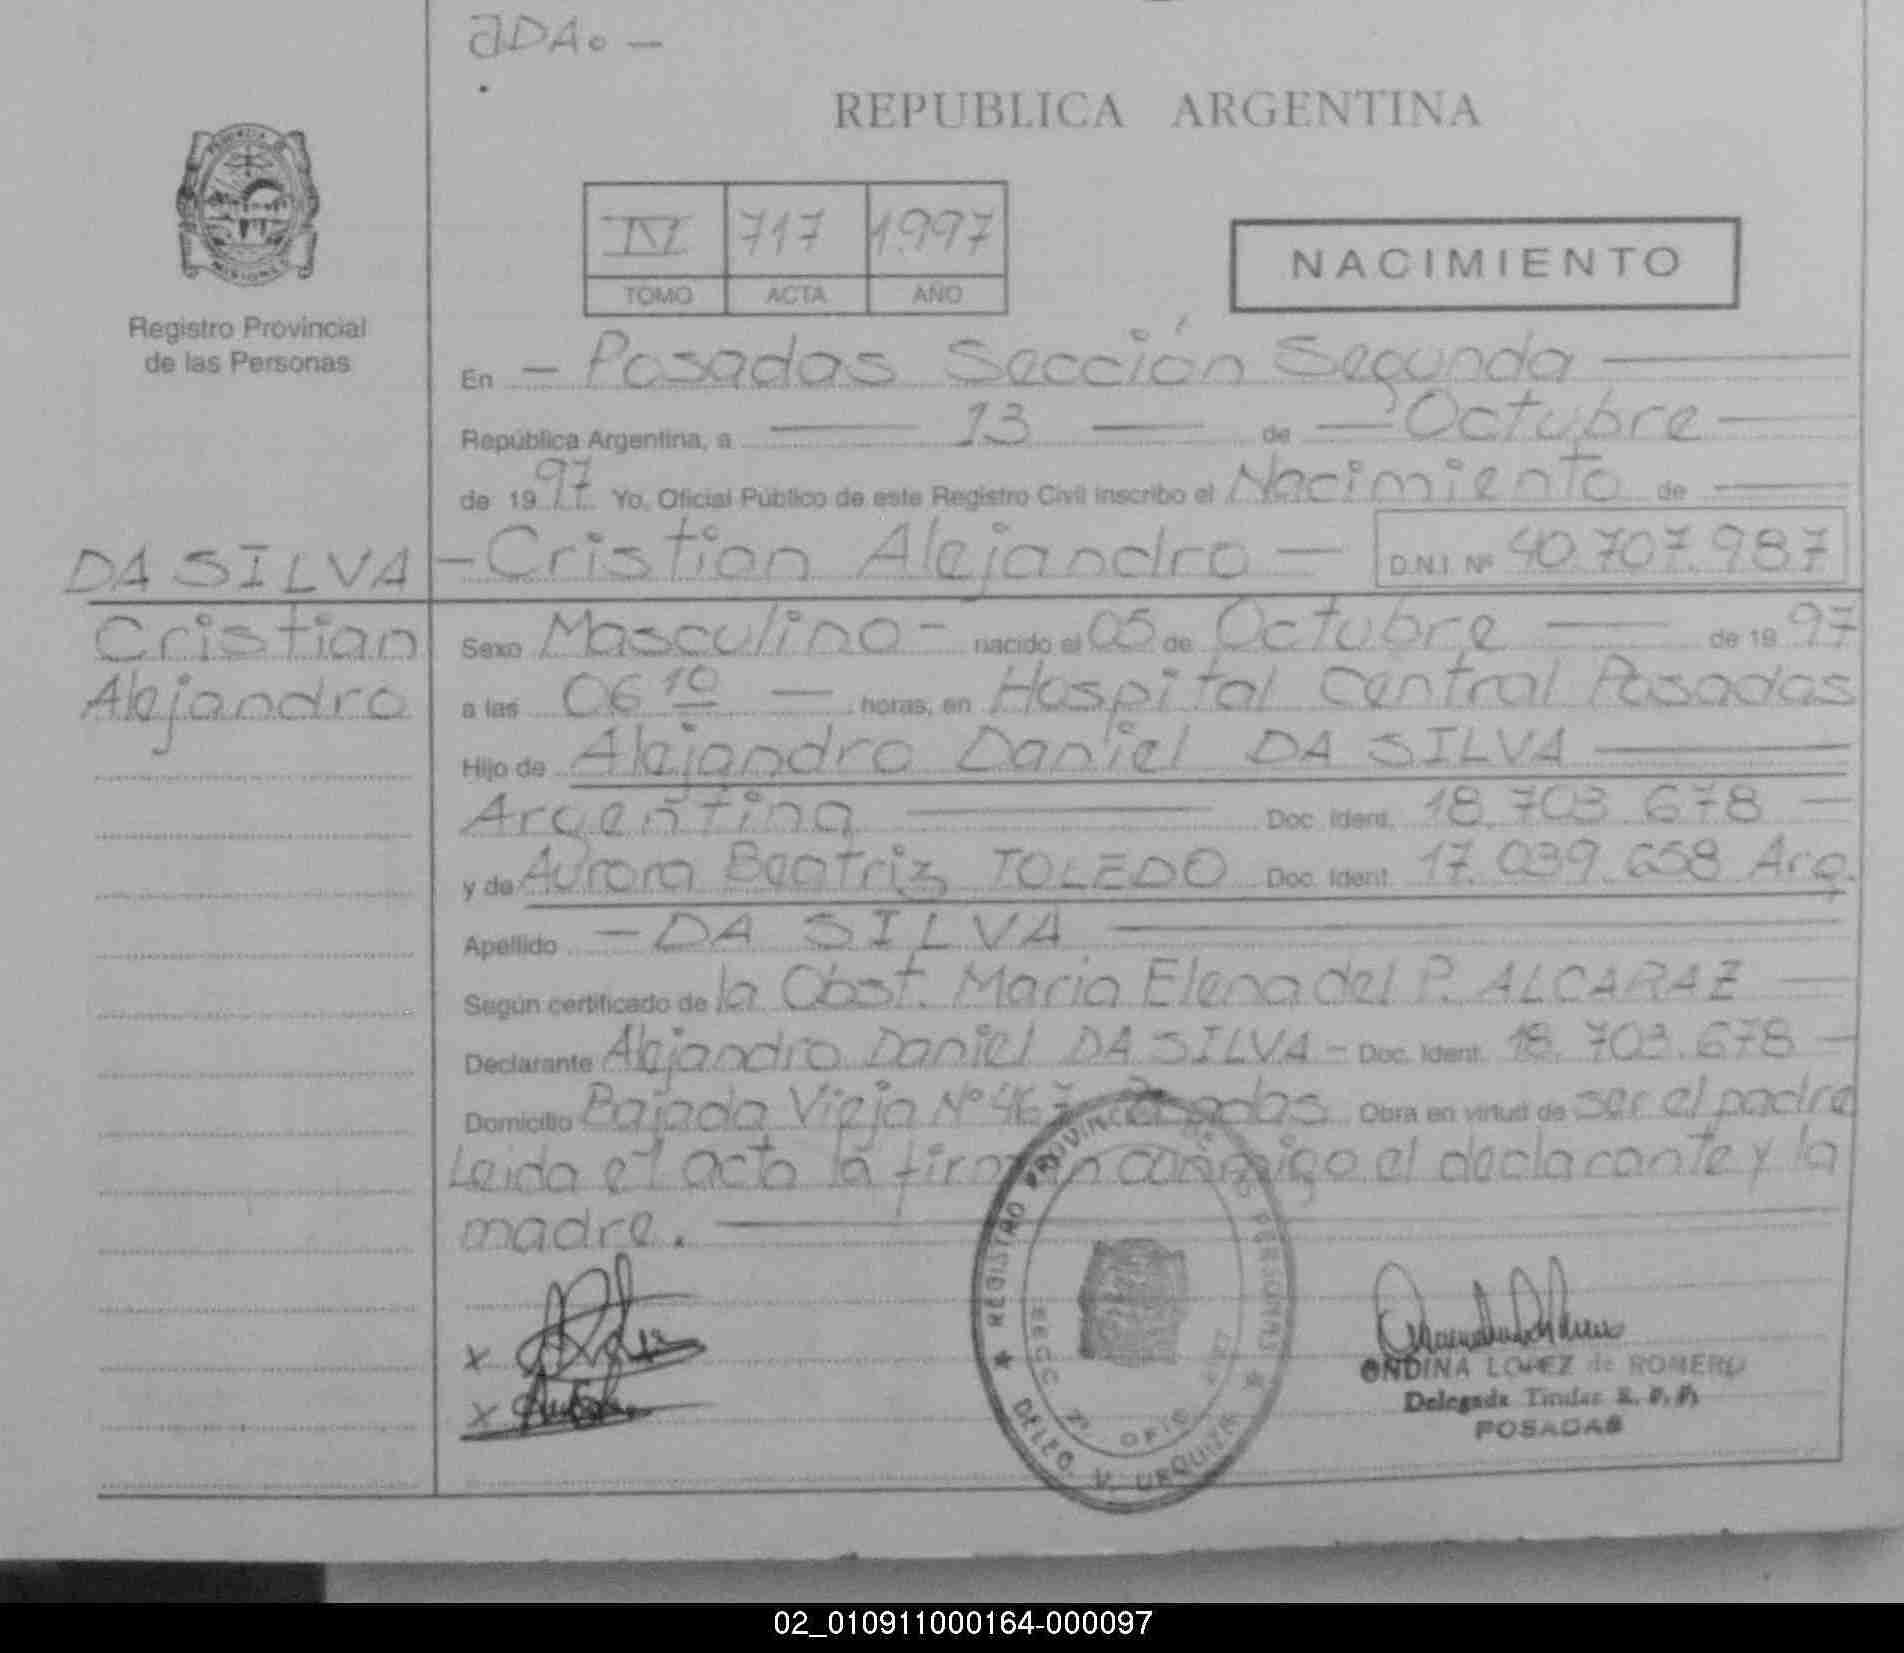 ADA. —
REPUBLICA ARGENTINA
IV 717 1.997
TOMO ACTA AÑO
NACIMIENTO
Registro Provincial
de las Personas
En — Posadas Sección Segunda
República Argentina, a 13 de Octubre
de 1997. Yo, Oficial Público de este Registro Civil inscribo el Nacimiento de
DA SILVA — Cristian Alejandro — D.N.I. Nº 40.707.987
Cristian
Alejandro
Sexo Masculino — nacido el 05 de Octubre de 1997
a las 06 10 horas, en Hospital Central Posadas
Hijo de Alejandro Daniel DA SILVA
Argentina Doc. Ident. 18.703.678
y de Aurora Beatriz TOLEDO Doc. Ident. 17.039.658 Arg.
Apellido — DA SILVA
Según certificado de la Obst. Maria Elena del P. ALCARAZ
Declarante Alejandro Daniel DA SILVA — Doc. Ident. 18.703.678
Domicilio Bajada Vieja Nº 467 Posadas Obra en virtud de ser el padre
Leida el acta la firman conmigo el declarante y la
madre.
REGISTRO PROVINCIAL DE LAS PERSONAS
SECC 2ª OFIC
DELEG. V. URQUIZA
ONDINA LOPEZ de ROMERO
Delegada Titular R. P. P.
POSADAS
MISIONES
02_010911000164-000097